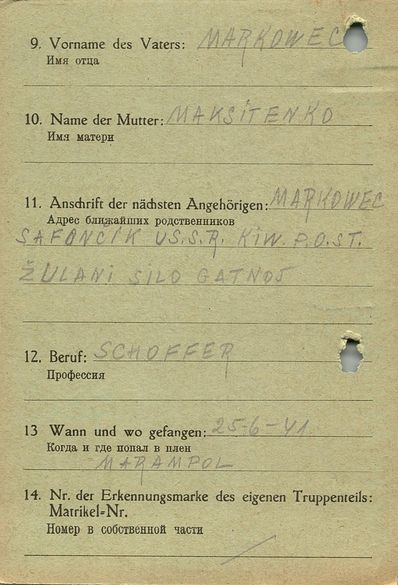 9. Vorname des Vaters: MARKOWEC
Имя отца
10. Name der Mutter: MAKSITENKO
Имя матери
11. Anschrift der nächsten Angehörigen: MARKOWEC
Адрес ближайших родственников
SAFONČIK US.S.R. KIW. P.O.ST.
ŽULANI SILO GATNOJ
12. Beruf: SCHOFFER
Профессия
13 Wann und wo gefangen: 25-6-41
Когда и где попал в плен
MARAMPOL
14. Nr. der Erkennungsmarke des eigenen Truppenteils:
Matrikel-Nr.
Номер в собственной части